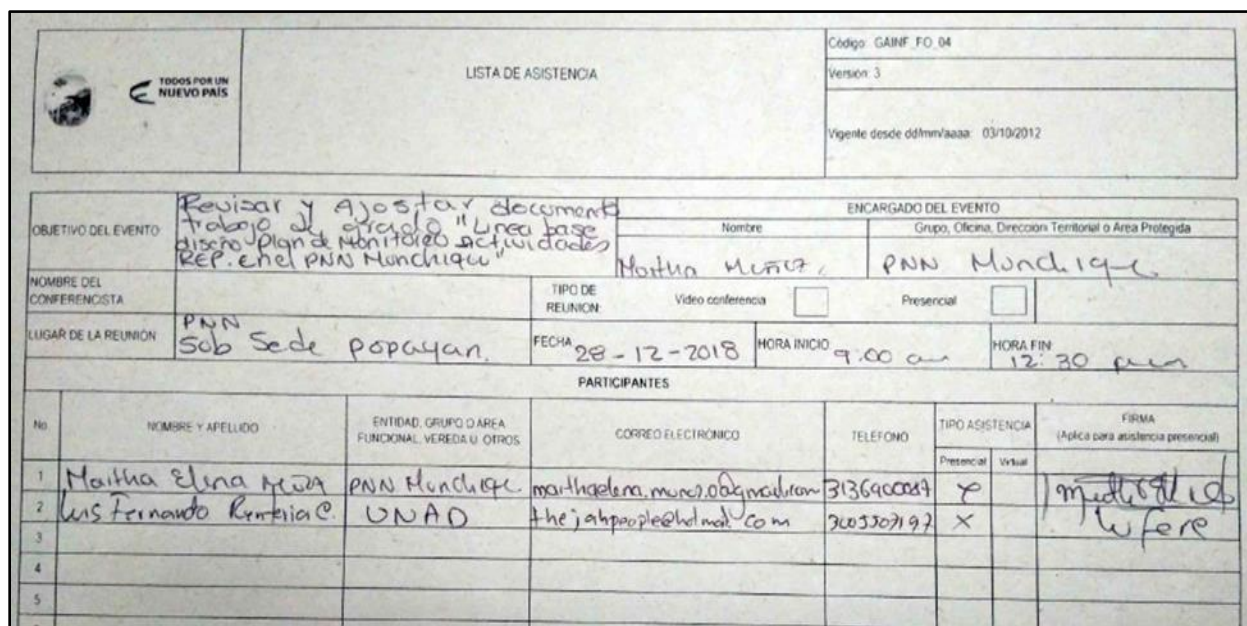 TODOS POR UN
NUEVO PAÍS
LISTA DE ASISTENCIA
Código: GAINF_FO_04
Versión: 3
Vigente desde dd/mm/aaaa: 03/10/2012
OBJETIVO DEL EVENTO:
Revisar y Ajostar documento
trabajo de grado "Linea base
diseño Plan de Monitoreo actividades
REP. en el PNN Munchique"
ENCARGADO DEL EVENTO
Nombre
Grupo, Oficina, Dirección Territorial o Area Protegida
Martha Muñoz.
PNN Munchique.
NOMBRE DEL
CONFERENCISTA
TIPO DE
REUNION:
Video conferencia
Presencial
LUGAR DE LA REUNIÓN
PNN
Sub Sede popayan.
FECHA
28-12-2018
HORA INICIO
9:00 am
HORA FIN
12:30 pm
PARTICIPANTES
No
NOMBRE Y APELLIDO
ENTIDAD, GRUPO O AREA
FUNCIONAL, VEREDA U OTROS
CORREO ELECTRÓNICO
TELEFONO
TIPO ASISTENCIA
Presencial
Virtual
FIRMA
(Aplica para asistencia presencial)
1 Martha Elena PNN Munchique.
2 Luis Fernando Renteria C. UNAD thejahpeople@hotmail.com 3005507197 X Lufere
3
4
5